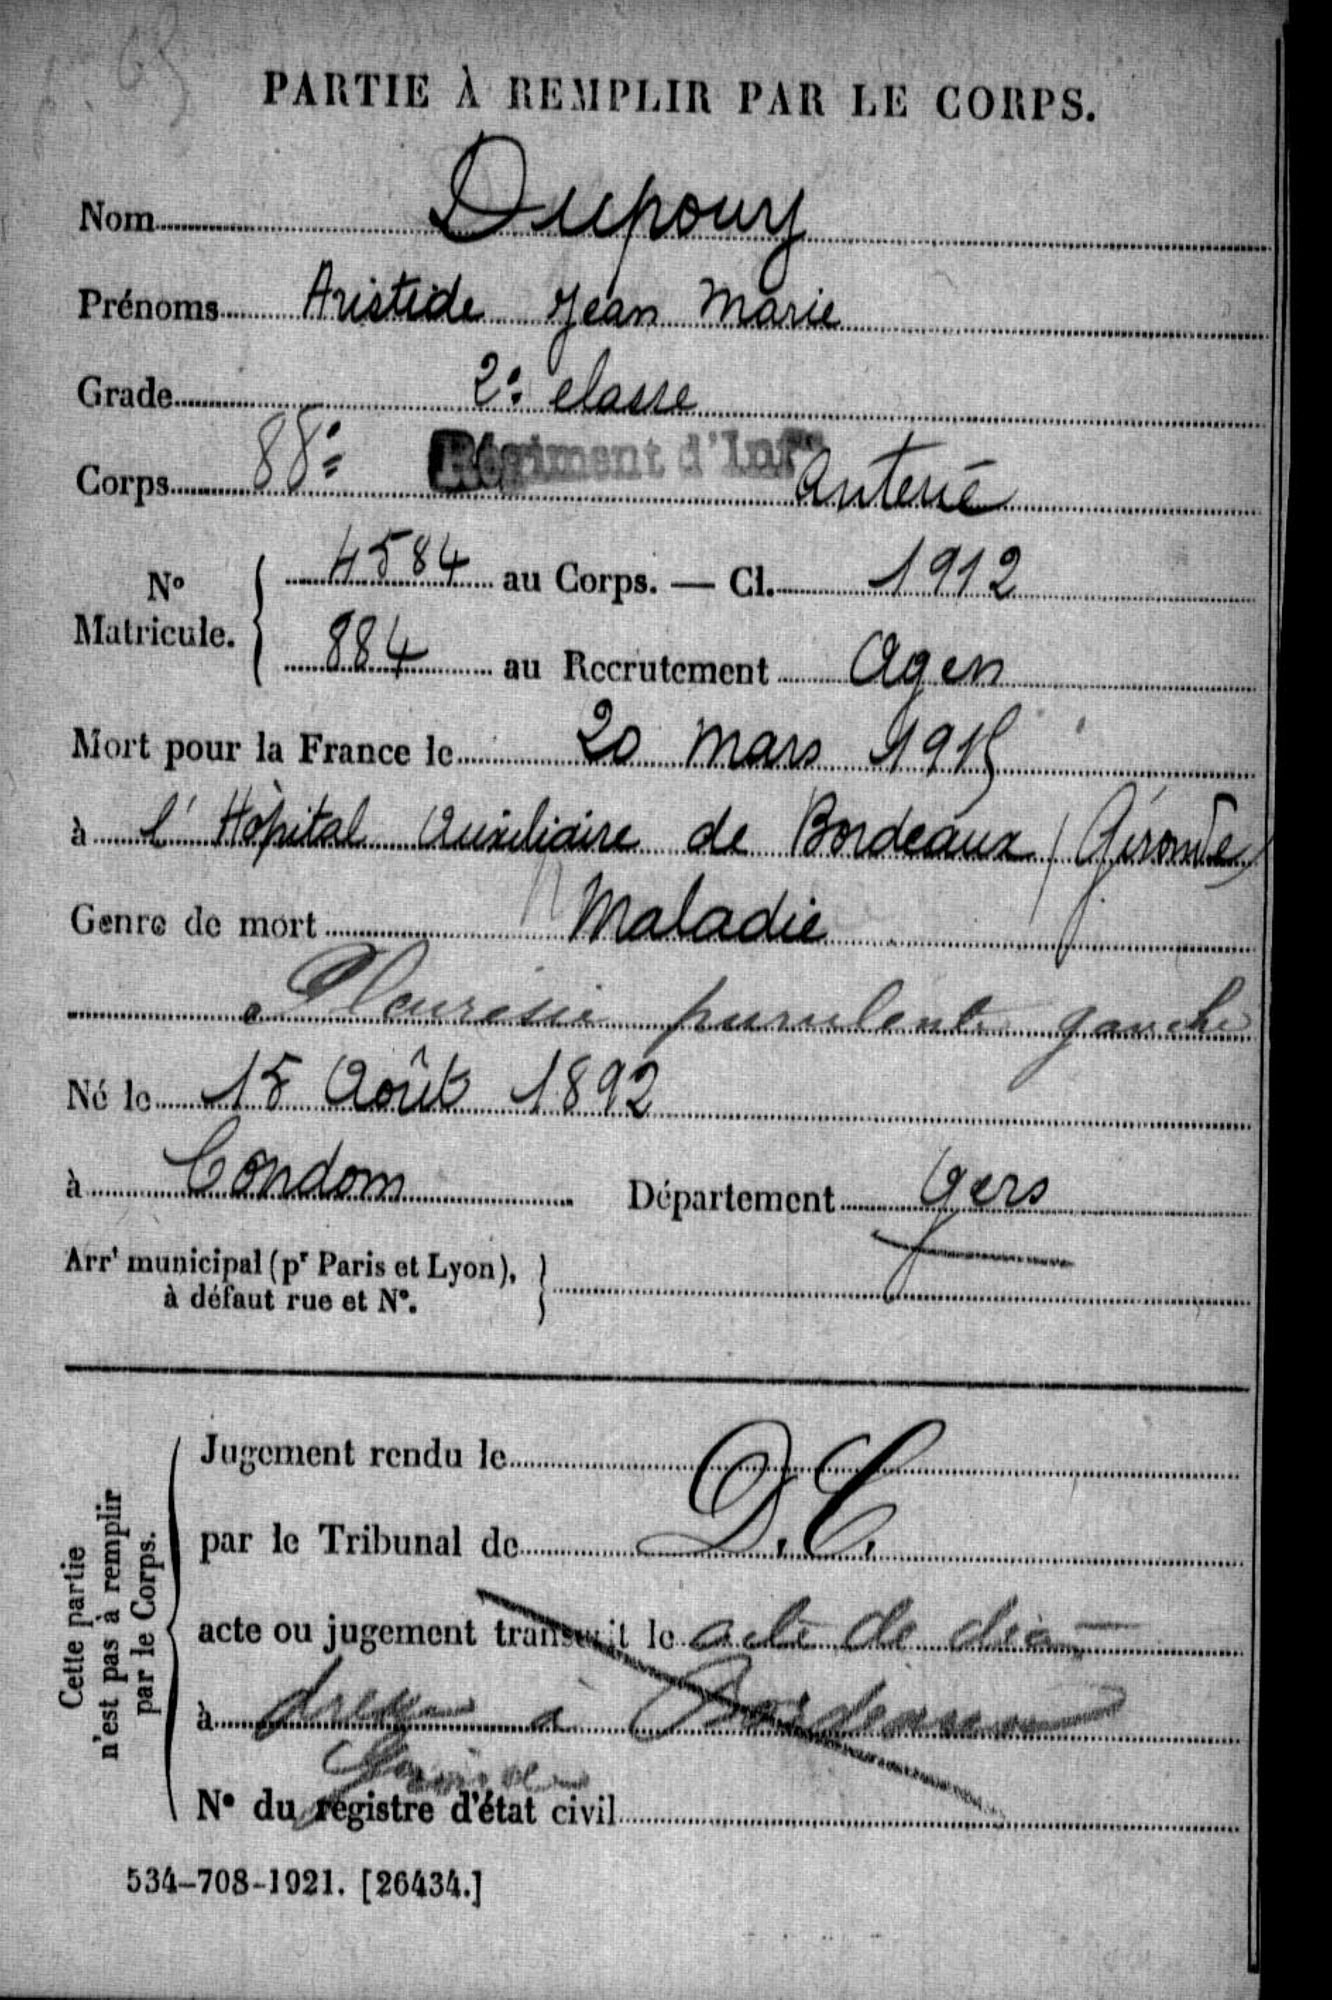 PARTIE À REMPLIR PAR LE CORPS.
Nom Dupouy
Prénoms Aristide Jean Marie
Grade 2e classe
Corps 88e Régiment d'Infanterie
No Matricule. 4584 au Corps. — Cl. 1912
884 au Recrutement Agen
Mort pour la France le 20 mars 1915
à l'Hôpital Auxiliaire de Bordeaux (Gironde)
Genre de mort Maladie
Pleurésie purulente gauche
Né le 15 Août 1892
à Condom Département Gers
Arrt municipal (pr Paris et Lyon), à défaut rue et No.
Cette partie n'est pas à remplir par le Corps.
Jugement rendu le
par le Tribunal de D.C.
acte ou jugement transcrit le acte de décès
à dressé à Bordeaux
Gironde
No du registre d'état civil
534-708-1921. [26434.]